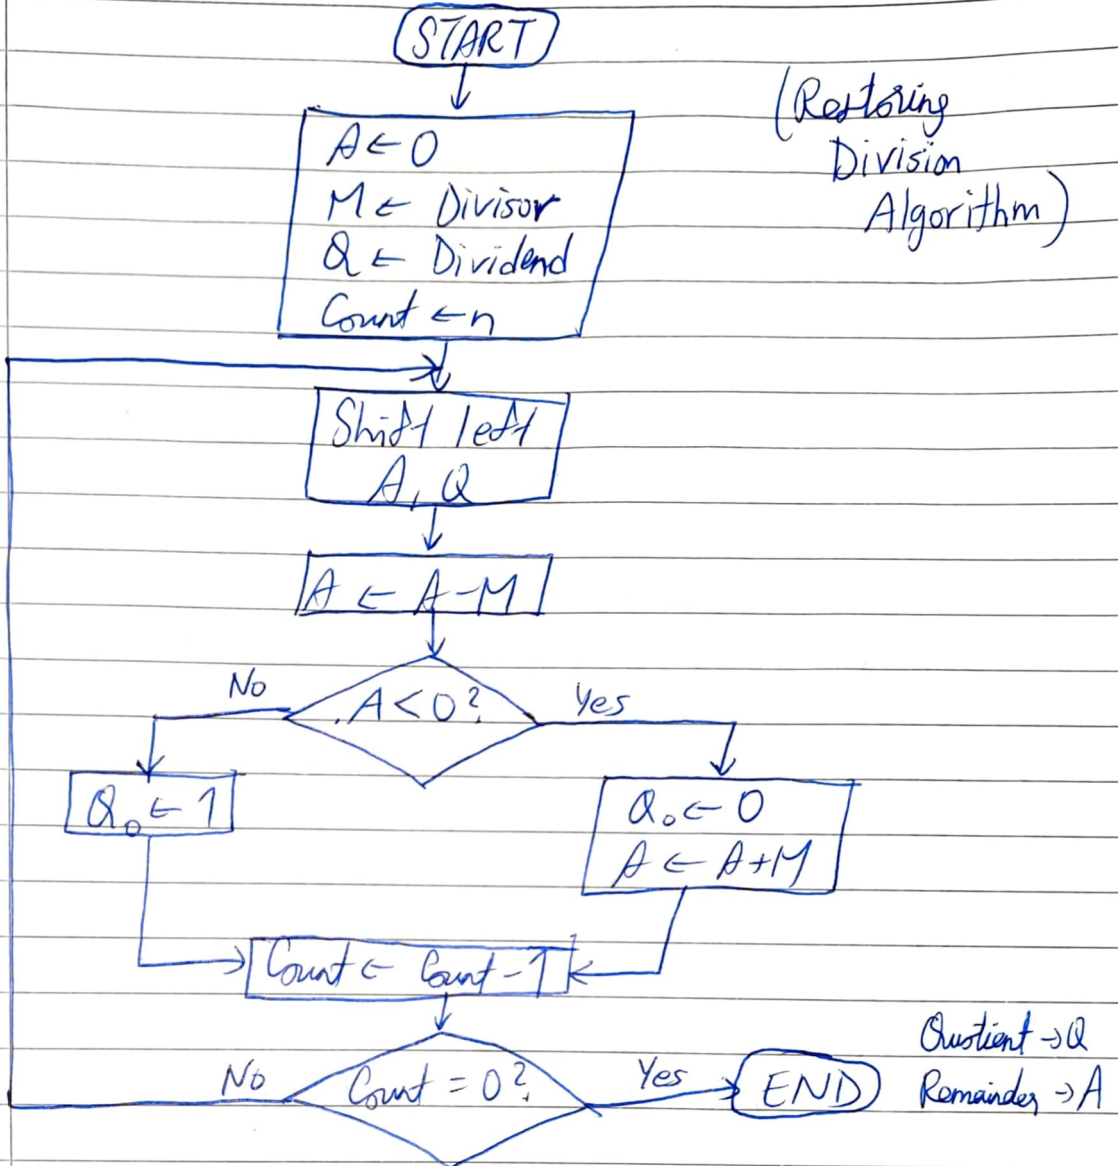 START
(Restoring
Division
Algorithm)
A ← 0
M ← Divisor
Q ← Dividend
Count ← n
Shift left
A, Q
A ← A - M
A < 0?
No
Yes
Q₀ ← 1
Q₀ ← 0
A ← A + M
Count ← Count - 1
Count = 0?
No
Yes
END
Quotient → Q
Remainder → A